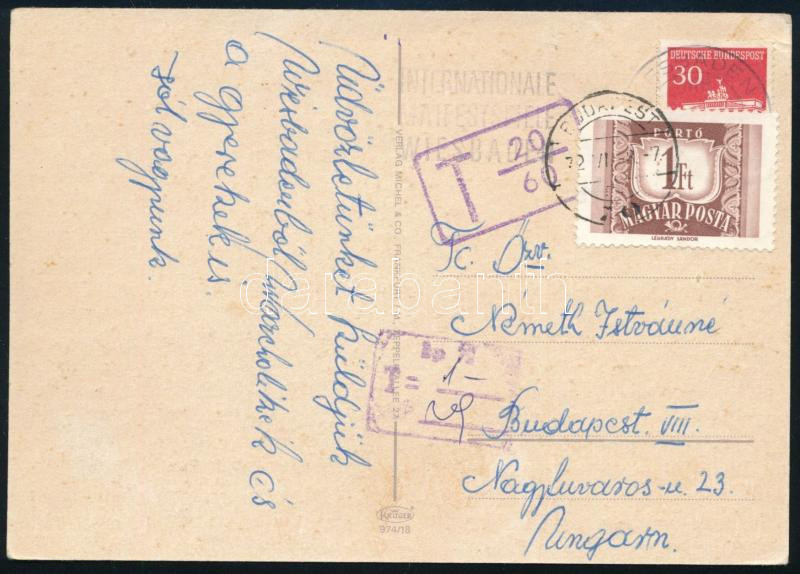 Üdvözletünket küldjük
Wiesbadenből, Marcholikék és
a gyerekek is.
Jól vagyunk.
VERLAG MICHEL & CO., FRANKFURT A.M., ZEPPELINALLEE 27
KRÜGER
974/18
INTERNATIONALE
WIESBADEN
DEUTSCHE BUNDESPOST
30
T 20
60
BUDAPEST
PORTÓ
1 Ft
MAGYAR POSTA
LÉGRÁDY SÁNDOR
K. Özv.
Németh Istvánné
1-
Budapest. VIII.
Nagyfuvaros-u. 23.
Ungarn.
darabanth